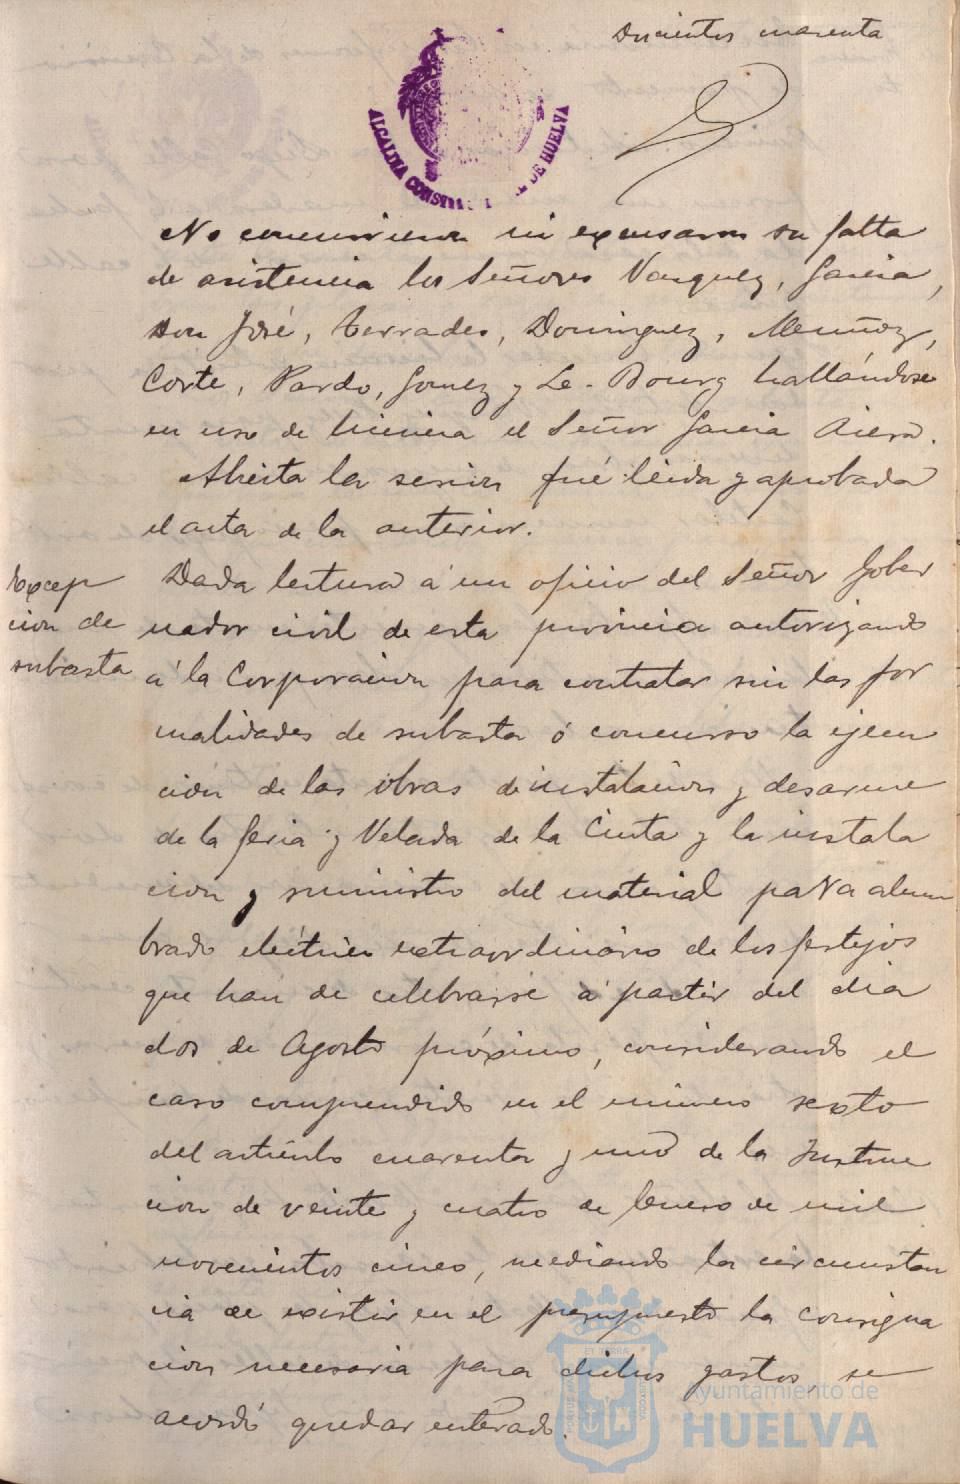 Doscientos cuarenta
ALCALDIA CONSTI DE HUELVA
No concurrieron ni excusaron su falta
de asistencia los Señores Vazquez, Garcia,
Don José, Terrades, Dominguez, Muñoz,
Corte, Pardo, Gomez y Le-Bourg hallándose
en uso de licencia el Señor Garcia
Abierta la sesion fué leida y aprobada
el acta de la anterior.
Excep
cion de
subasta
Dada lectura á un oficio del Señor Gober
nador civil de esta provincia autorizando
á la Corporacion para contratar sin las for
malidades de subasta ó concurso la ejecu
ción de las obras de instalacion y desarme
de la feria y Velada de la Cinta y la instala
cion y suministro del material para alum
brado eléctrico extraordinario de los festejos
que han de celebrarse á partir del dia
dos de Agosto próximo, considerando el
caso comprendido en el número sexto
del artículo cuarenta y uno de la Instruc
cion de veinte y cuatro de Enero de mil
novecientos cinco, mediando la circunstan
cia de existir en el presupuesto la consigna
cion necesaria para dichos gastos, se
acordó quedar enterado.
Ayuntamiento de
HUELVA